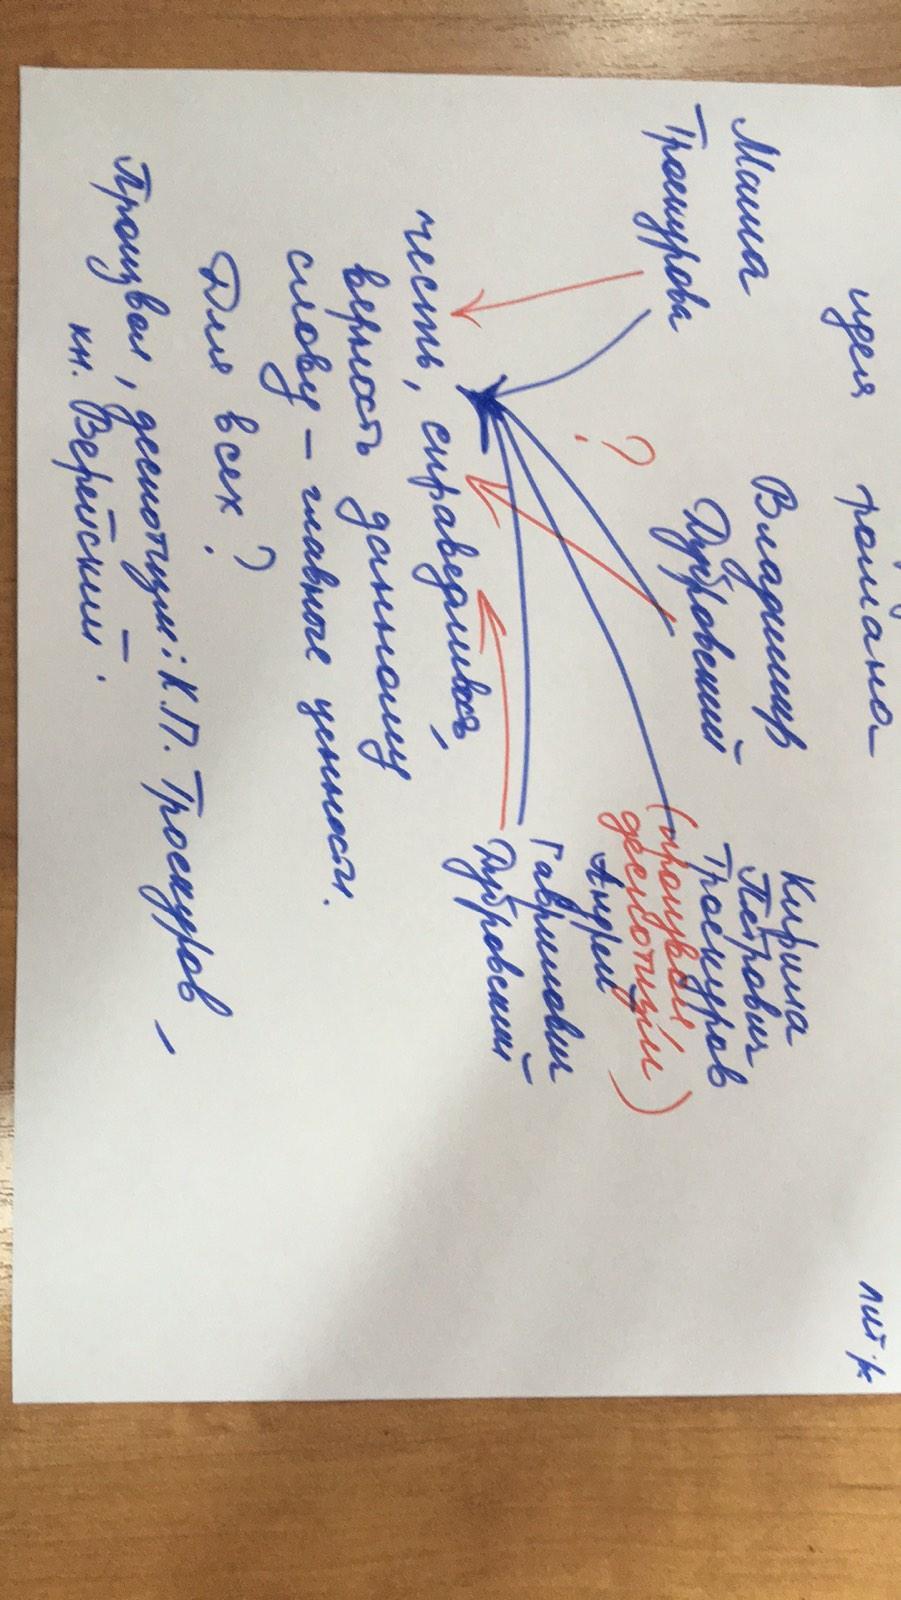 идея романа
лит-ра
Маша
Троекурова
Владимир
Дубровский
Кирила
Петрович
Троекуров
(произвол
деспотизм)
Андрей
Гаврилович
Дубровский
?
честь, справедливость,
верность данному
слову – главные ценности.
Для всех?
Произвол, деспотизм: К.П. Троекуров,
кн. Верейский.